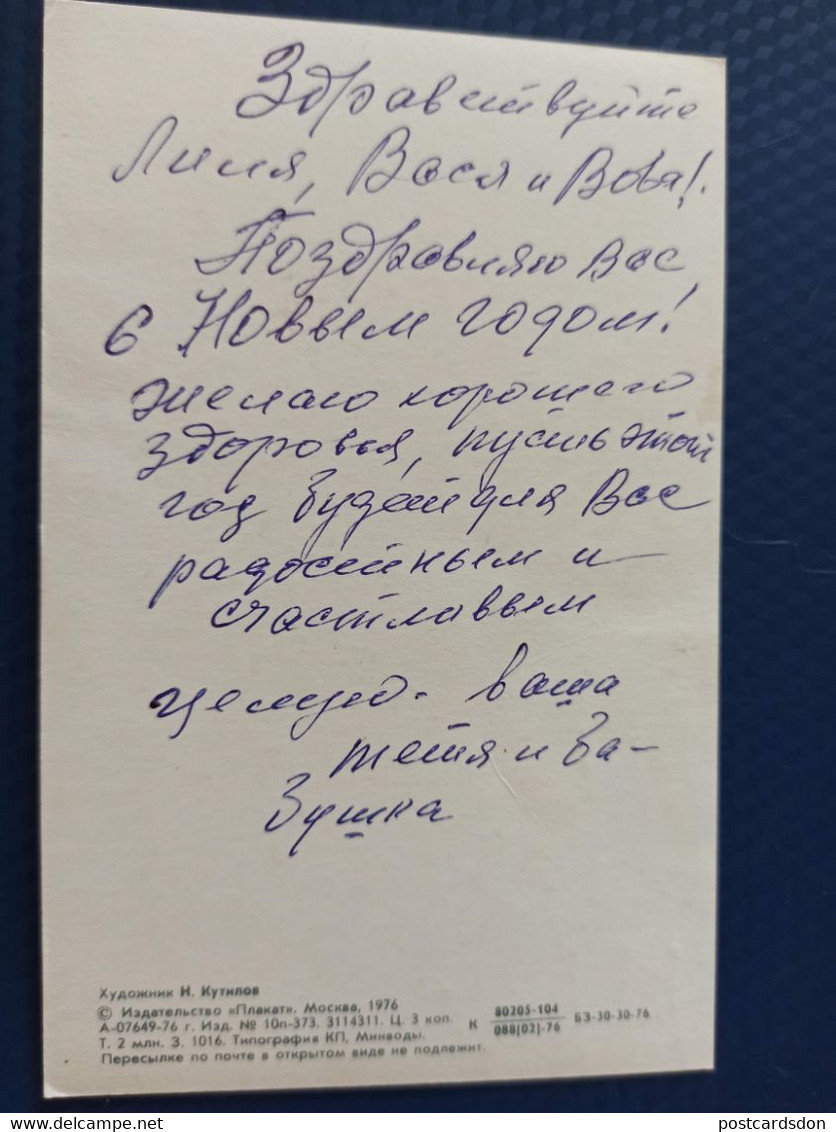 Здравствуйте
Лиля, Вася и Вова!
Поздравляю Вас
с Новым годом!
Желаю хорошего
здоровья, пусть этот
год будет для Вас
радостным и
счастлавым
целую. ваша
тетя и ба-
бушка
Художник И. Кутилов
© Издательство «Плакат». Москва, 1976
А-07649-76 г. Изд. № 10п-373. 3114311. Ц. 3 коп.
Т. 2 млн. З. 1016. Типография КП, Минводы.
Пересылке по почте в открытом виде не подлежит.
К 80205-104
088(02)-76 БЗ-30-30-76
postcardsdon